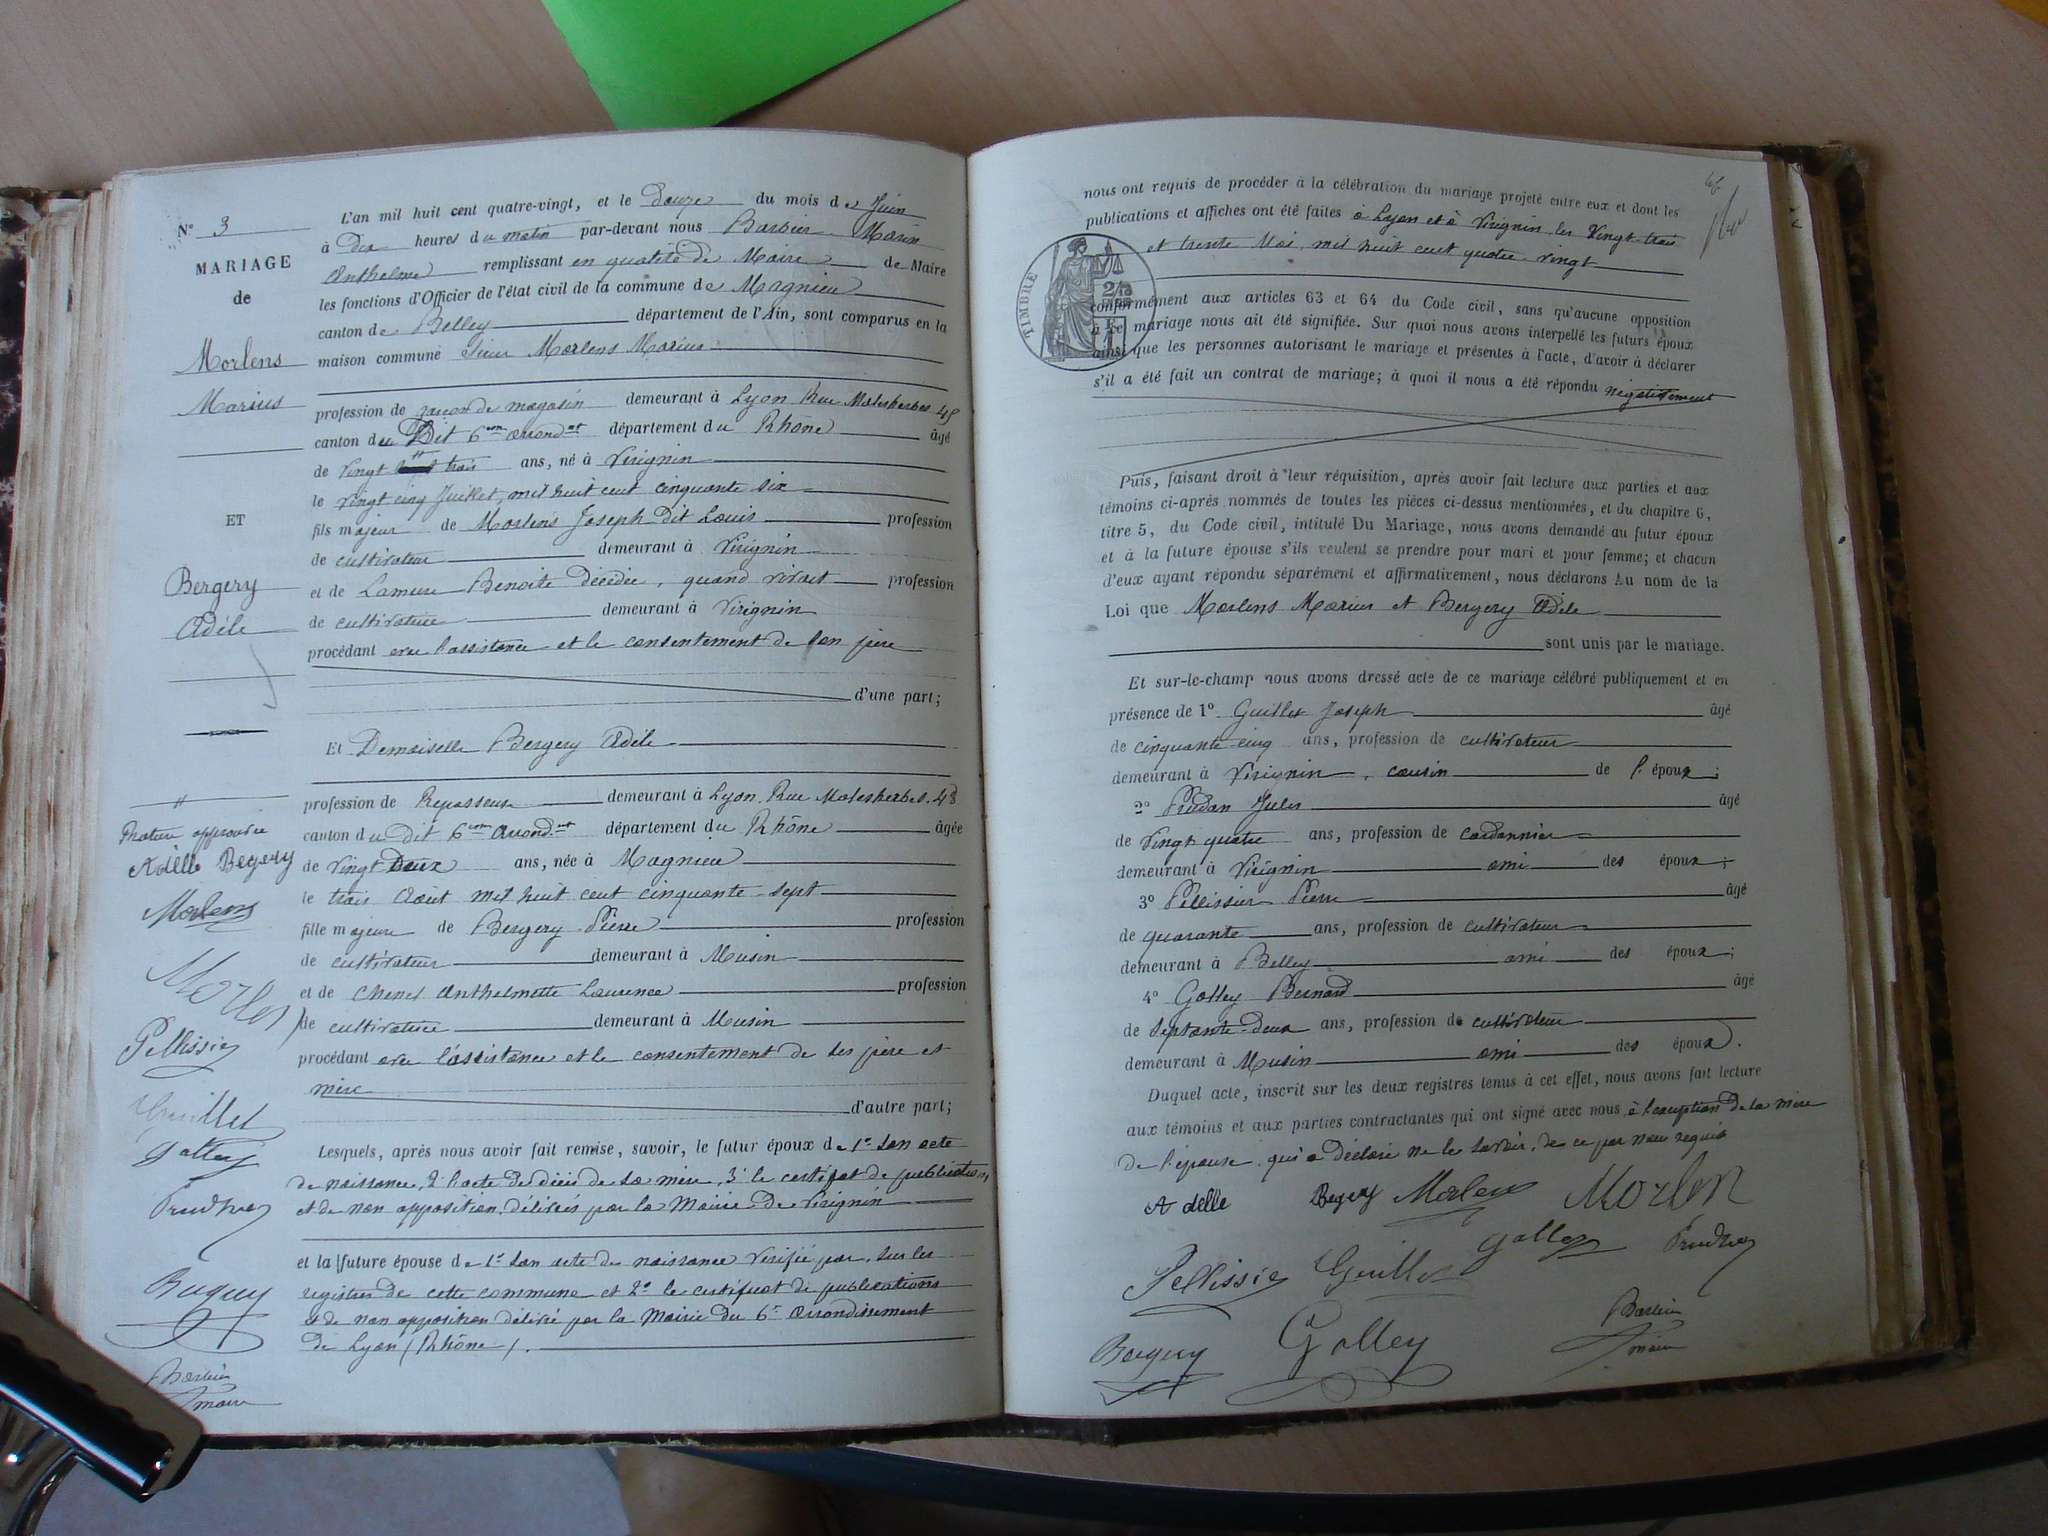 N° 3
MARIAGE
de
Morlens
Marius
ET
Bergery
Adèle
Rature approuvée
Adélle Begery
Morlens
Morlen
Pellissier
Guillet
Golley
Barbier
maire
L'an mil huit cent quatre-vingt, et le Douze du mois de Juin
à dix heures du matin par-devant nous Barbier Marin
Anthelme remplissant en qualité de Maire de Maire
les fonctions d'Officier de l'état civil de la commune de Magnieu
canton de Belley département de l'Ain, sont comparus en la
maison commune Sieur Morlens Marius
profession de garçon de magasin demeurant à Lyon Rue Malesherbes 48
canton du Dit 6eme arrondt département du Rhône âgé
de vingt trois ans, né à Virignin
le vingt cinq Juillet, mil huit cent cinquante six
fils majeur de Morlens Joseph Dit Louis profession
de cultivateur demeurant à Virignin
et de Lameure Benoite Décédée, quand vivait profession
de cultivatrice demeurant à Virignin
procédant avec l'assistance et le consentement de son père
d'une part;
Et Demoiselle Bergery Adèle
profession de Repasseuse demeurant à Lyon Rue Malesherbes 48
canton du Dit 6eme arrondt département du Rhône âgée
de vingt Deux ans, née à Magnieu
le trois Août mil huit cent cinquante-sept
fille majeure de Bergery Pierre profession
de cultivateur demeurant à Musin
et de Chenet Anthelmette Laurence profession
de cultivatrice demeurant à Musin
procédant avec l'assistance et le consentement de ses père et
mère d'autre part;
Lesquels, après nous avoir fait remise, savoir, le futur époux de 1° son acte
de naissance, 2° l'acte de décès de sa mère, 3° le certificat de publications
et de non opposition délivrés par la Mairie de Virignin
et la future épouse de 1° son acte de naissance vérifié par, sur les
registres de cette commune et 2° le certificat de publications
et de non opposition délivré par la Mairie du 6e arrondissement
de Lyon (Rhône).
nous ont requis de procéder à la célébration du mariage projeté entre eux et dont les
publications et affiches ont été faites à Lyon et à Virignin les Vingt-trois
et trente Mai mil huit cent quatre-vingt
TIMBRE
conformément aux articles 63 et 64 du Code civil, sans qu'aucune opposition
à ce mariage nous ait été signifiée. Sur quoi nous avons interpellé les futurs époux
ainsi que les personnes autorisant le mariage et présentes à l'acte, d'avoir à déclarer
s'il a été fait un contrat de mariage; à quoi il nous a été répondu négativement
Puis, faisant droit à leur réquisition, après avoir fait lecture aux parties et aux
témoins ci-après nommés de toutes les pièces ci-dessus mentionnées, et du chapitre 6,
titre 5, du Code civil, intitulé Du Mariage, nous avons demandé au futur époux
et à la future épouse s'ils veulent se prendre pour mari et pour femme; et chacun
d'eux ayant répondu séparément et affirmativement, nous déclarons Au nom de la
Loi que Morlens Marius et Bergery Adèle
sont unis par le mariage.
Et sur-le-champ nous avons dressé acte de ce mariage célébré publiquement et en
présence de 1° Guillet Joseph âgé
de cinquante cinq ans, profession de cultivateur
demeurant à Virignin, cousin de l'époux;
2° Jules âgé
de vingt quatre ans, profession de cordonnier
demeurant à Virignin ami des époux;
3° Pellissier Pierre âgé
de quarante ans, profession de cultivateur
demeurant à Belley ami des époux;
4° Golley Bernard âgé
de septante-deux ans, profession de cultivateur
demeurant à Musin ami des époux.
Duquel acte, inscrit sur les deux registres tenus à cet effet, nous avons fait lecture
aux témoins et aux parties contractantes qui ont signé avec nous à l'exception de la mère
de l'épouse qui a déclaré ne le savoir, de ce par nous requis
Adélle Begery Morlens Morlen
Pellissier Guillet Golley
Golley Barbier
maire